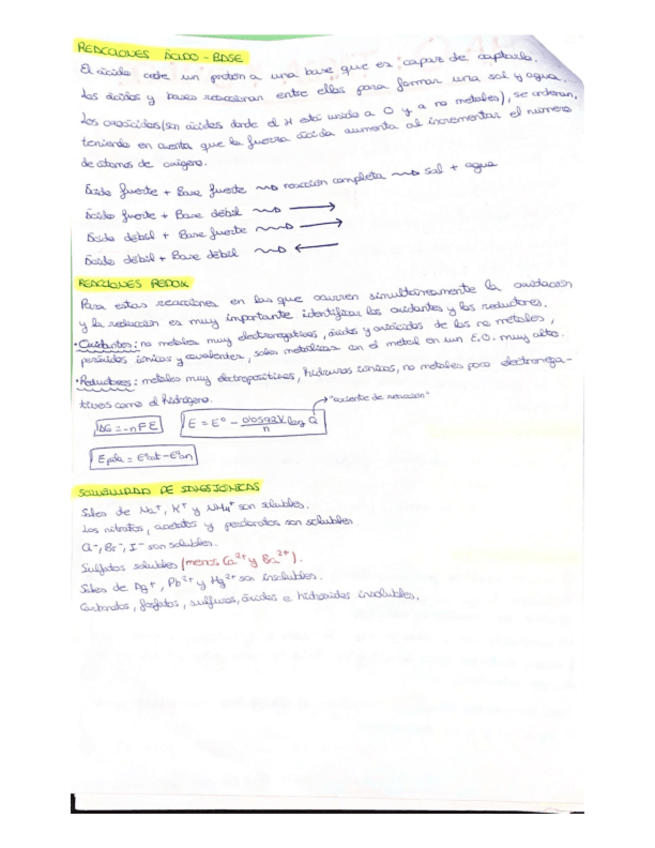 REACCIONES ÁCIDO-BASE
El ácido cede un protón a una base que es capaz de captarlo.
Los ácidos y bases reaccionan entre ellos para formar una sal y agua.
Los oxoácidos (son ácidos donde el H está unido a O y a no metales), se ordenan,
teniendo en cuenta que la fuerza ácida aumenta al incrementar el número
de átomos de oxígeno.
Ácido fuerte + Base fuerte ⇝ reacción completa ⇝ sal + agua
Ácido fuerte + Base débil ⇝ →
Ácido débil + Base fuerte ⇝ →
Ácido débil + Base débil ⇝ ←
REACCIONES REDOX
Para estas reacciones en las que ocurren simultáneamente la oxidación
y la reducción es muy importante identificar los oxidantes y los reductores.
· Oxidantes: no metales muy electronegativos, ácidos y oxiácidos de los no metales,
peróxidos iónicos y covalentes, sales metálicas con el metal en un E.O. muy alto.
· Reductores: metales muy electropositivos, hidruros iónicos, no metales poco electronega-
tivos como el hidrógeno.
→ "cociente de reacción"
ΔG = -nFE
E = E° - 0'0592V/n log Q
Epila = E°cat - E°an
SOLUBILIDAD DE
Sales de Na⁺, K⁺ y NH₄⁺ son solubles.
Los nitratos, acetatos y percloratos son solubles
Cl⁻, Br⁻, I⁻ son solubles.
Sulfatos solubles (menos Ca²⁺ y Ba²⁺).
Sales de Ag⁺, Pb²⁺ y Hg²⁺ son insolubles.
Carbonatos, fosfatos, sulfuros, óxidos e hidróxidos insolubles.